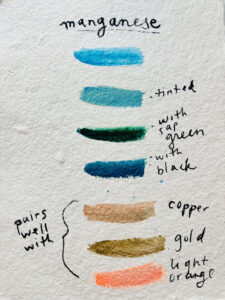 manganese
· tinted
· with
sap
green
· with
black
pairs
well
with
copper
gold
light
orange